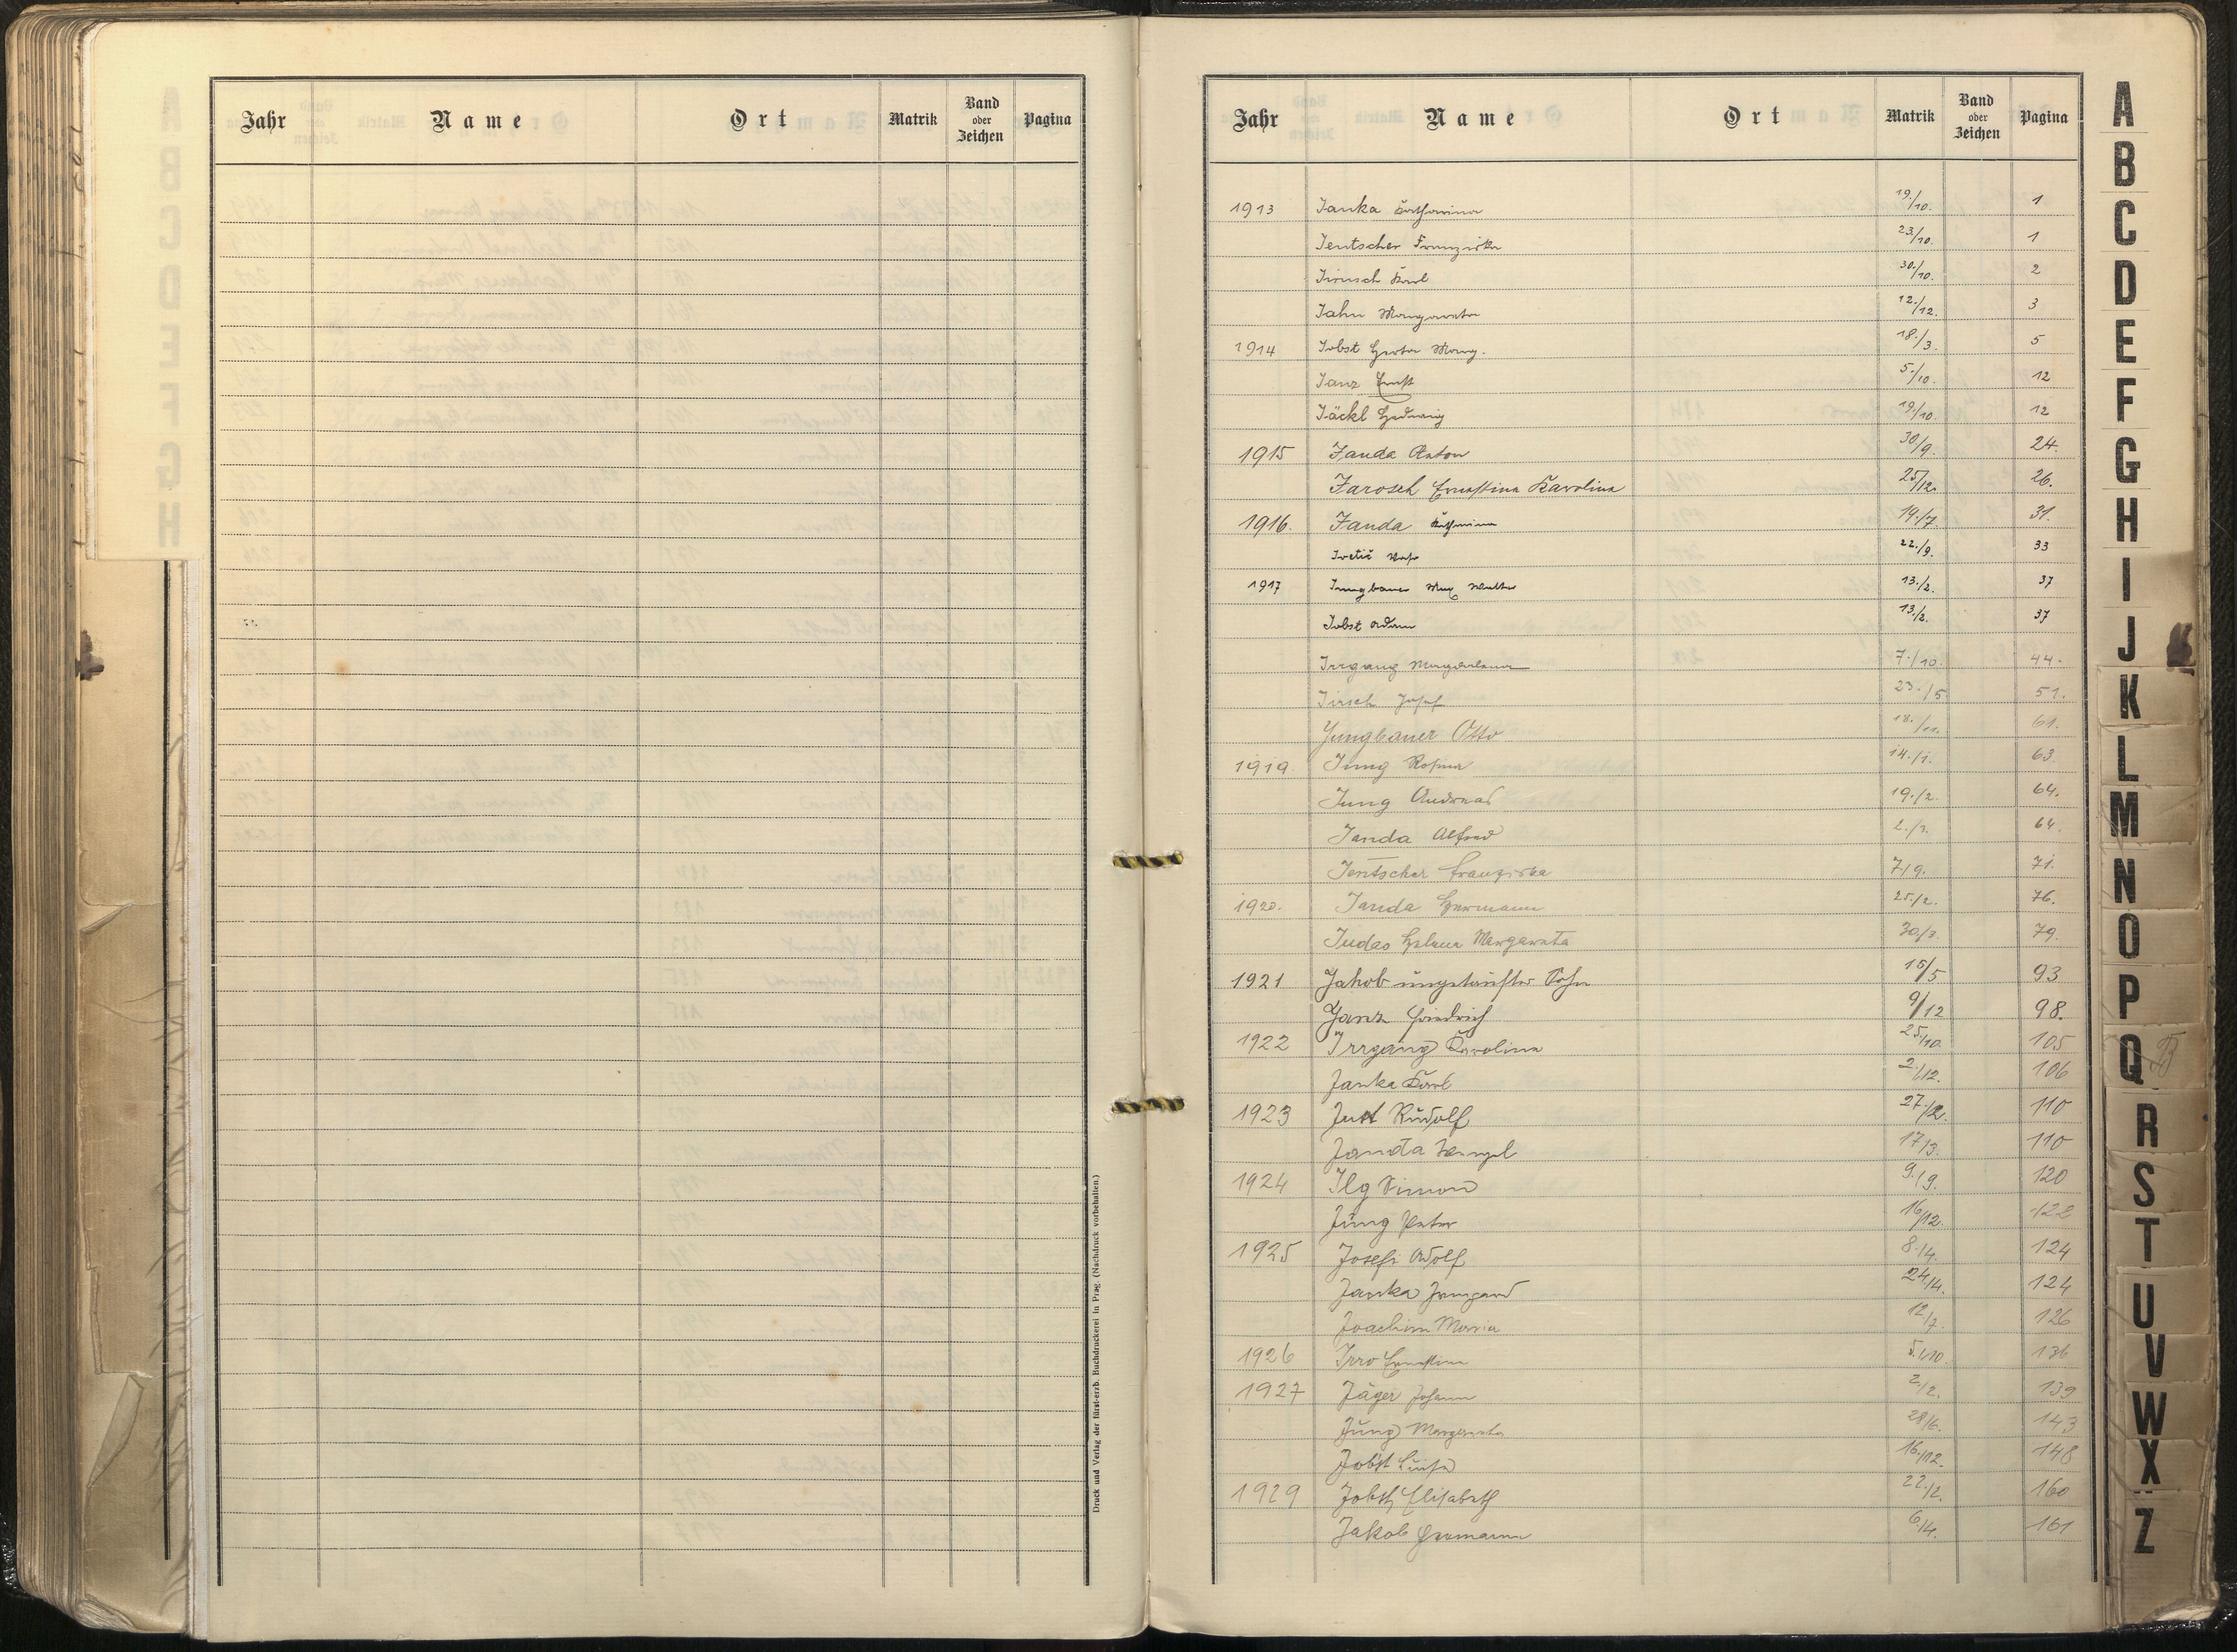 Jahr Name Ort Matrik Band oder Zeichen Pagina
Druck und Verlag der fürst-erzb. Buchdruckerei in Prag. (Nachdruck vorbehalten.)
Jahr Name Ort Matrik Band oder Zeichen Pagina
1913 Janka Katharina 19./10. 1
Jentscher Franziska 23/10. 1
Jirusch Karl 30./10. 2
Jahn Margareta 12./12. 3
1914 Jobst Herta Marg. 18./3. 5
Janz Ernst 5./10. 12
Jäckl Hedwig 19./10. 12
1915 Janda Anton 30/9. 24.
Jarosch Ernestina Karolina 25/12. 26.
1916. Janda Katharina 19./7. 31.
Ivetič 22./9. 33
1917 Jungbauer Max Walter 13./2. 37
Jobst Adam 13./2. 37
Irrgang 7./10. 44.
Jirsch Josef 23./5 51.
Jungbauer Otto 18./11. 61.
1919. Jung Rosina 14./1. 63.
Jung Andreas 19./2. 64.
Janda Alfred 2./3. 64.
Jentscher Franziska 7/9. 71.
1920. Janda Hermann 25./2. 76.
Judas Helena Margareta 30/3. 79.
1921 Jakob ungetaufter Sohn 15/5 93
Janz Friedrich 9/12 98.
1922 Irrgang Karolina 25./10. 105
Janka Karl 2./12. 106
1923 Just Rudolf 27./2. 110
Janda Wenzel 17/3. 110
1924 Ilg Simon 9./9. 120
Jung Peter 16/12. 122
1925 Josefi Adolf 8./4. 124
Janka Irmgard 24./4. 124
Joachim Maria 12/7. 126
1926 Irro Ernestine 5./10. 136
1927 Jäger Johann 2./2. 139
Jung Margareta 28/6. 143
Jobst Luise 16./12. 148
1929 Jobst Elisabeth 22./2. 160
Jakob Hermann 6./4. 161
A
B
C
D
E
F
G
H
I
J
K
L
M
N
O
P
Q
R
S
T
U
V
W
X
Z